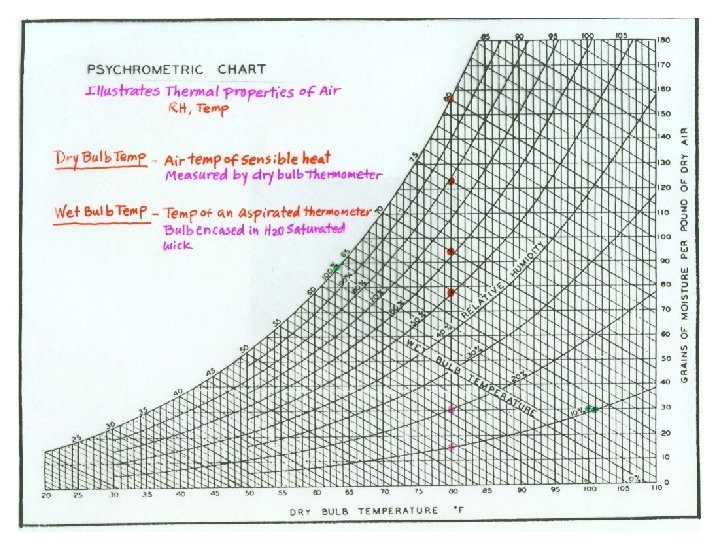 PSYCHROMETRIC CHART
Illustrates Thermal properties of Air
RH, Temp
Dry Bulb Temp - Air temp of sensible heat
Measured by dry bulb thermometer
Wet Bulb Temp - Temp of an aspirated thermometer
Bulb encased in H2O saturated
wick
85 90 95 100 105
80
75
70
65
60
55
50
45
40
35
30
25
100%
40% RELATIVE HUMIDITY
30%
20%
10%
0%
WET BULB TEMPERATURE
180
170
160
150
140
130
120
110
100
90
80
70
60
50
40
30
20
10
0
GRAINS OF MOISTURE PER POUND OF DRY AIR
20 25 30 35 40 45 50 55 60 65 70 75 80 85 90 95 100 105 110
DRY BULB TEMPERATURE °F